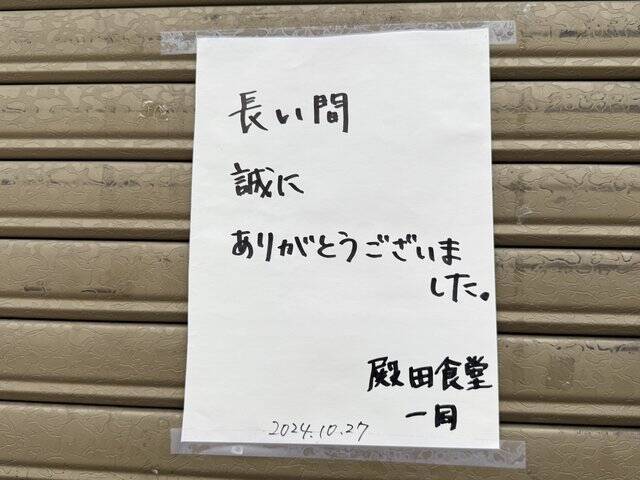 長い間
誠に
ありがとうございま
した。
殿田食堂
一同
2024.10.27